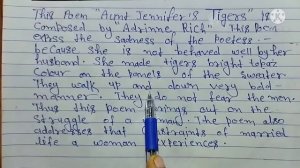 This Poem "Aunt Jennifer's Tigers is
composed by "Adrinne Rich" This Poem
the Sadness of the Poetess -
because She is not behaved well by her
husband. She made tigers bright topaz
Colour on the panels of the Sweater
They walk up and down very bold
manner. They do not fear the men.
Thus this Poem brings out on the
Struggle of a woman. The poem also
addresses that of married
life a woman experiences.